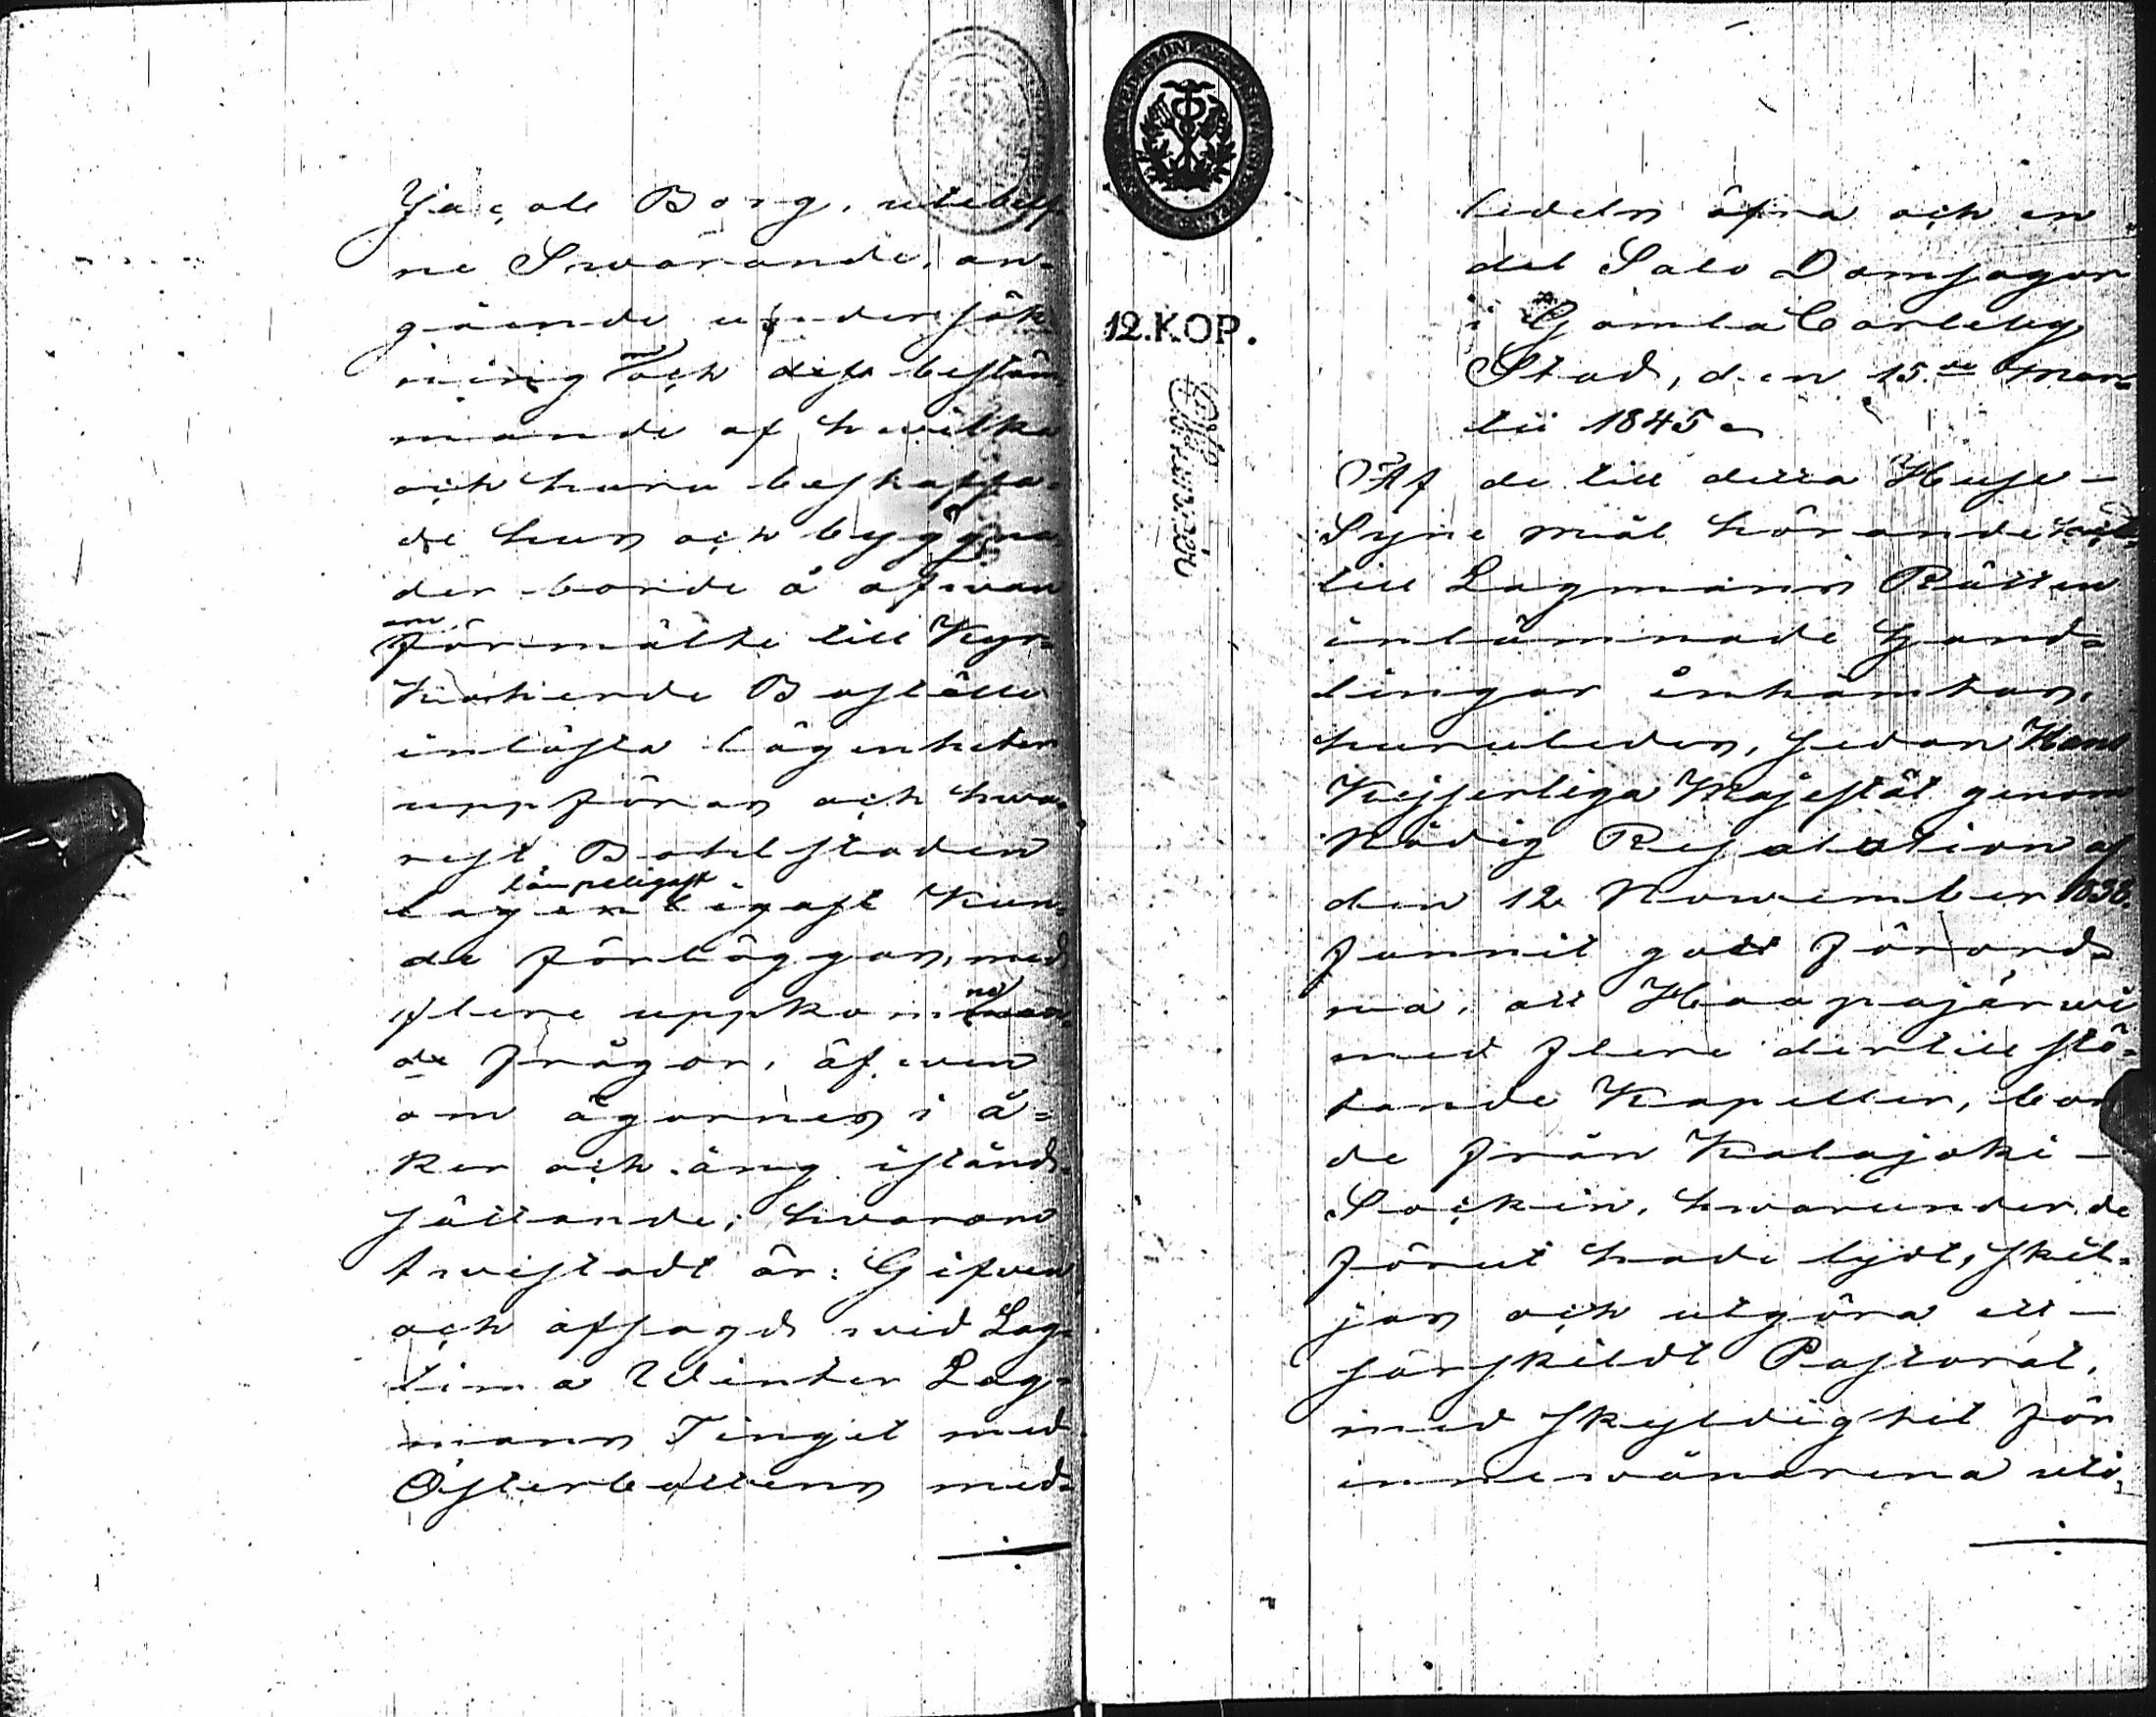 Jacob Borg, uteblif-
ne Swarande, an-
gående undersök-
ning och dess bestäm-
mande af hwilka
och huru beskaffa-
de hus och byggna-
der borde å ofwan
förmälte till Kyr-
koherde Boställe
inlösta lägenheter
uppföras och hwa-
rest Bohlstaden
lämpeligast
lägenligast kun-
de förläggas, med
flere uppkomman-
de frågor, äfwen
om ägornes i å-
ker och äng istånd-
sättande; hwarom
twistadt är: Gifwen
och afsagd wid Lag-
tima Winter Lag-
mans Tinget med
Österbottens med-
12.KOP.
ledels öfra och en
del Salo Domsagor
i Gamla Carleby
Stad, den 15.de Mar-
tii 1845
Af de till detta Huse-
Syne mål hörande
till Lagmans Rätten
inlämnade hand-
lingar inhämtas,
huruledes, sedan Hans
Kejserliga Majestät genom
Nådig Resolution af
den 12 November 1838
funnit godt förord-
na, att Haapajärwi
med flere dertill stö-
tande Kapeller, bor-
de från Kalajoki
Sockn, hwarunder de
förut hade lydt, skil-
jas och utgöra ett
särskildt Pastorat,
med skyldighet för
innewånarena uti